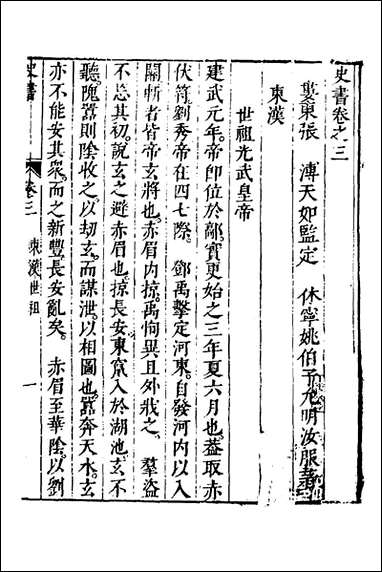 史書卷之三
婁東張　溥天如監定　休寧姚伯予允明汝服著
東漢
世祖光武皇帝
建武元年。帝即位於鄗。實更始之三年夏六月也。葢取赤
伏符劉秀帝在四七際。　鄧禹擊定河東。自發河内以入
關。斬者皆帝玄將也。赤眉内掠。禹徇異且外戕之。　羣盜
不忘其初。說玄之避赤眉也。掠長安東竄入於湖池。玄不
聽。隗囂則陰收之。以刼玄。而謀泄。以相圖也。囂奔天水。玄
亦不能安其衆。而之新豐。長安亂矣。　赤眉至華陰。以劉
史書　卷三　東漢世祖　一